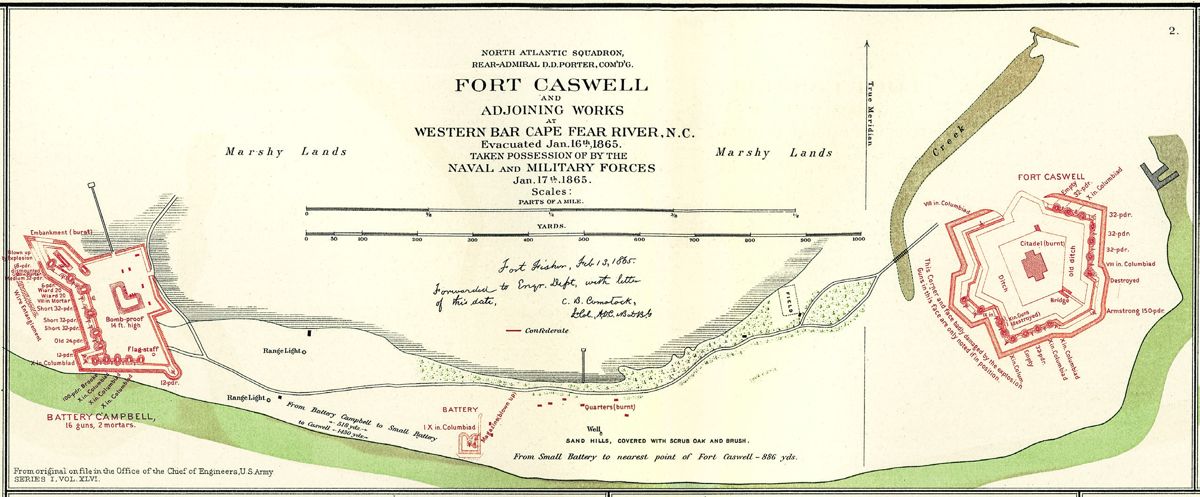 2.
NORTH ATLANTIC SQUADRON,
REAR-ADMIRAL D.D. PORTER, COM'D'G.
FORT CASWELL
AND
ADJOINING WORKS
AT
WESTERN BAR CAPE FEAR RIVER, N.C.
Evacuated Jan. 16th, 1865.
TAKEN POSSESSION OF BY THE
NAVAL AND MILITARY FORCES
Jan. 17th. 1865.
Scales:
PARTS OF A MILE.
0 1/8 1/4 3/8 1/2
YARDS.
0 50 100 200 300 400 500 600 700 800 900 1000
Marshy Lands
Marshy Lands
True Meridian
Creek
Fort Fisher, Feb 13, 1865.
Forwarded to Engr. Dept, with letter
of this date,
C. B. Comstock,
Confederate
FIELD
Embankment (burnt)
Blown up
by explosion
dismounted
Medium 32-pdr.
6-pdr.
Wiard 20
Wiard 20
VIII in Mortar
Short 32-pdr.
Short 32-pdr.
Short 32-pdr.
Old 24pdr.
12-pdr.
X in. Columbiad
Wire Entanglement
Bomb-proof
14 ft. high
Flag-staff
12-pdr.
100-pdr. Brooke
X in. Columbiad
X in. Columbiad
X in. Columbiad
BATTERY CAMPBELL,
16 guns, 2 mortars.
Range Light
Range Light
From Battery Campbell to Small Battery
518 yds.
to Caswell 1480 yds.
BATTERY
1 X in. Columbiad
Magazine (blown up)
Quarters (burnt)
Well
SAND HILLS, COVERED WITH SCRUB OAK AND BRUSH.
From Small Battery to nearest point of Fort Caswell - 886 yds.
FORT CASWELL
VIII in. Columbiad
Empty
32-pdr.
X in. Columbiad
32-pdr.
32-pdr.
32-pdr.
VIII in. Columbiad
Destroyed
Armstrong 150-pdr.
Citadel (burnt)
Old ditch
Ditch
Bridge
X in. Guns
(destroyed)
X in. Colum.
Empty
32-pdr.
X in. Columbiad
X in. Columbiad
This Corner and face badly damaged by the explosion
Guns in this face are only noted if in position
From original on file in the Office of the Chief of Engineers, U.S. Army
SERIES I, VOL. XLVI.